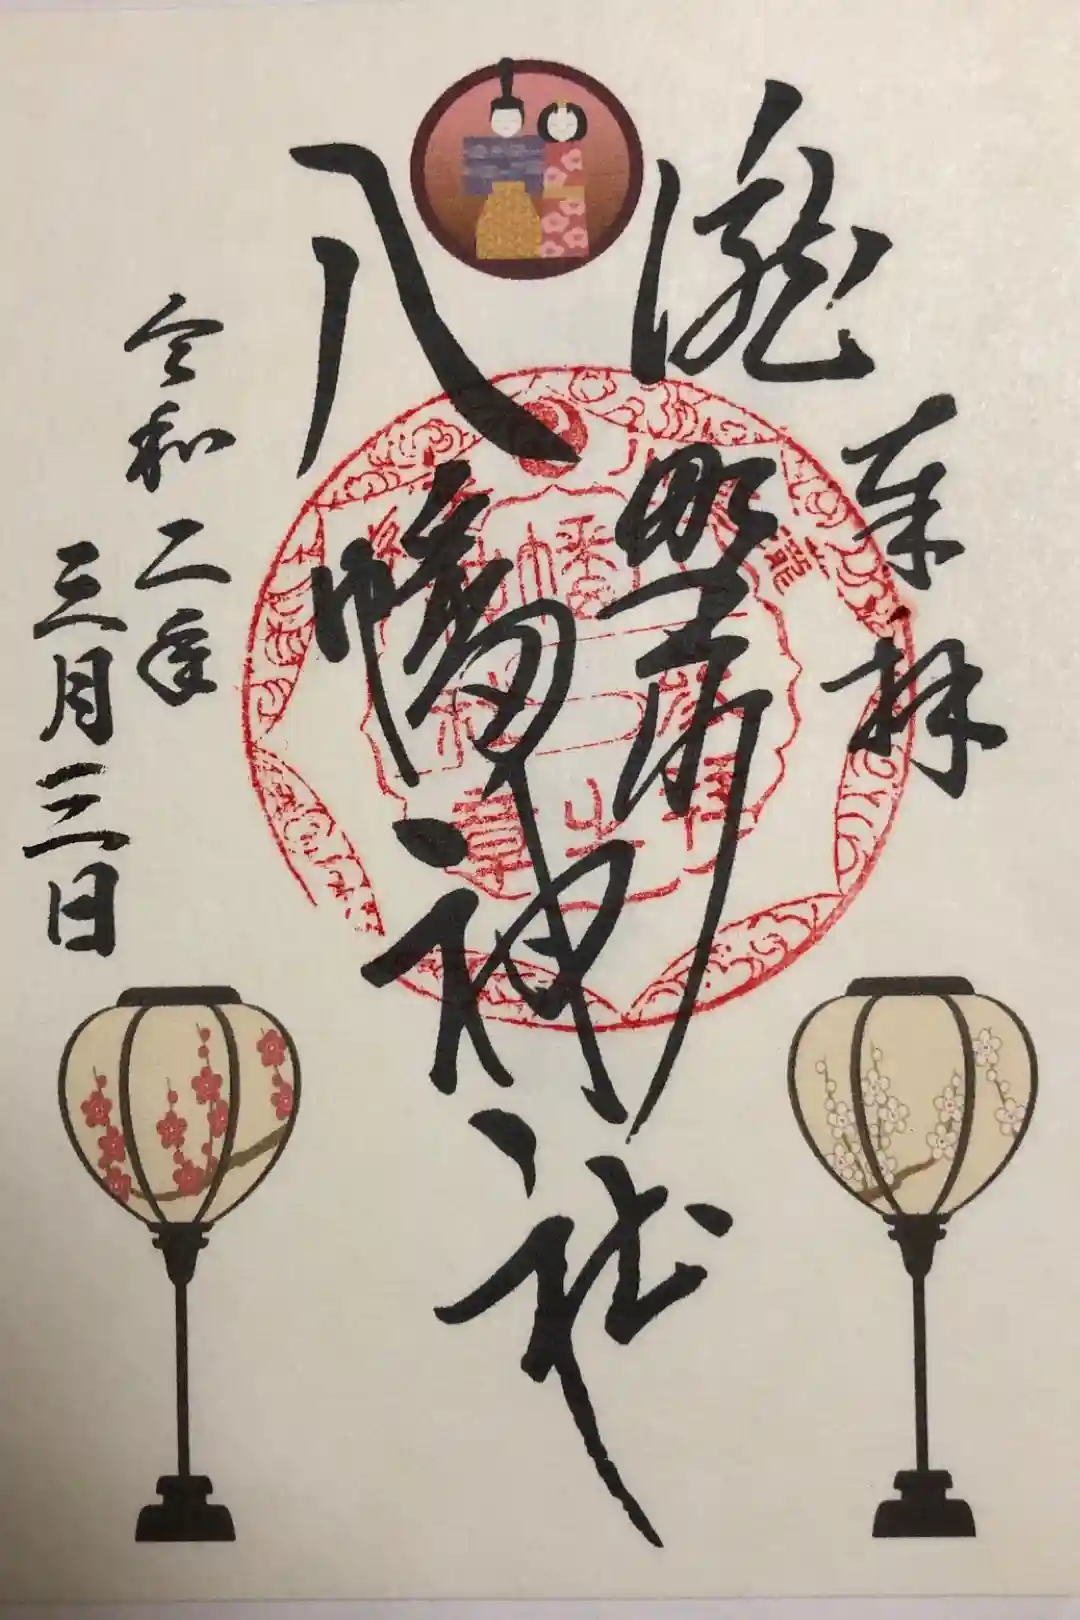 奉拝
瀧野川
八幡神社
令和二年
三月三日